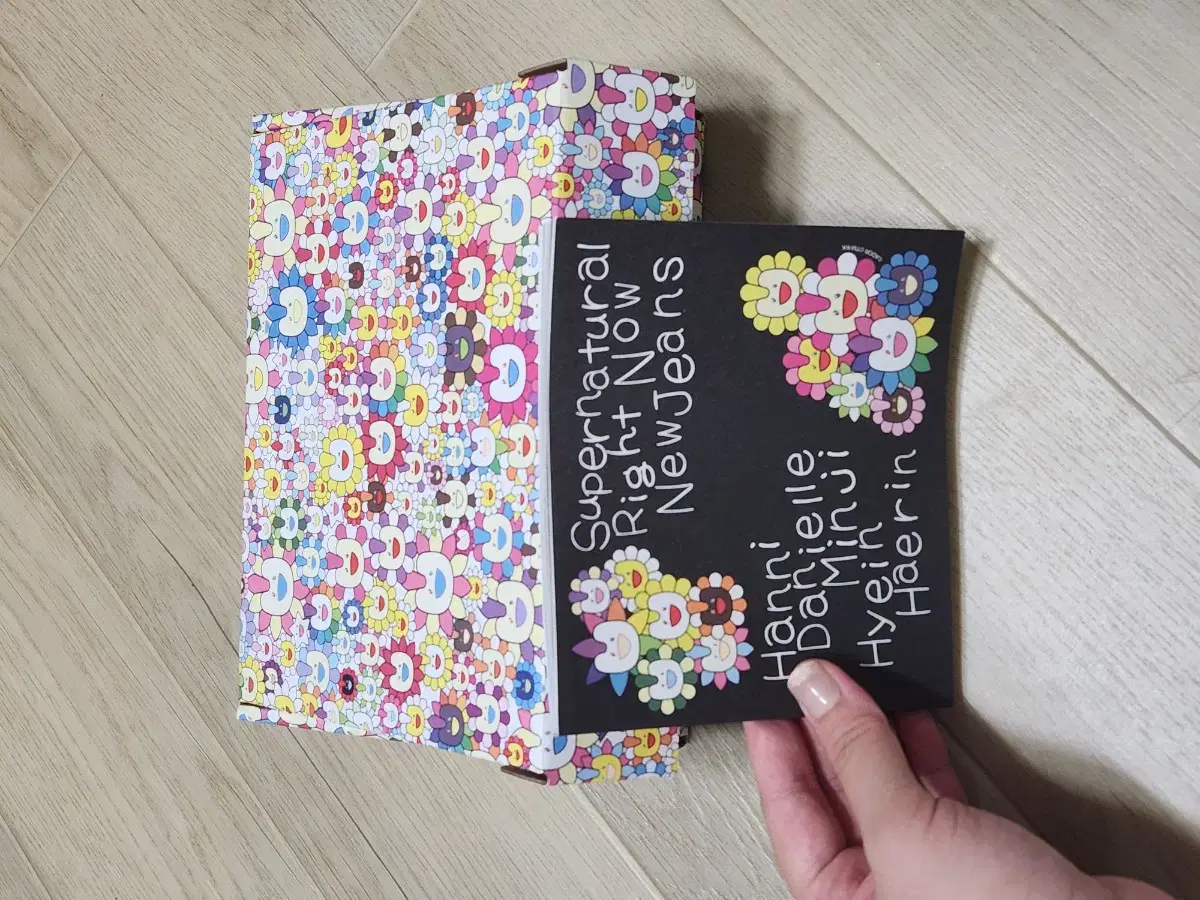 Supernatural
Right Now
NewJeans
Hanni
Danielle
Minji
Hyein
Haerin